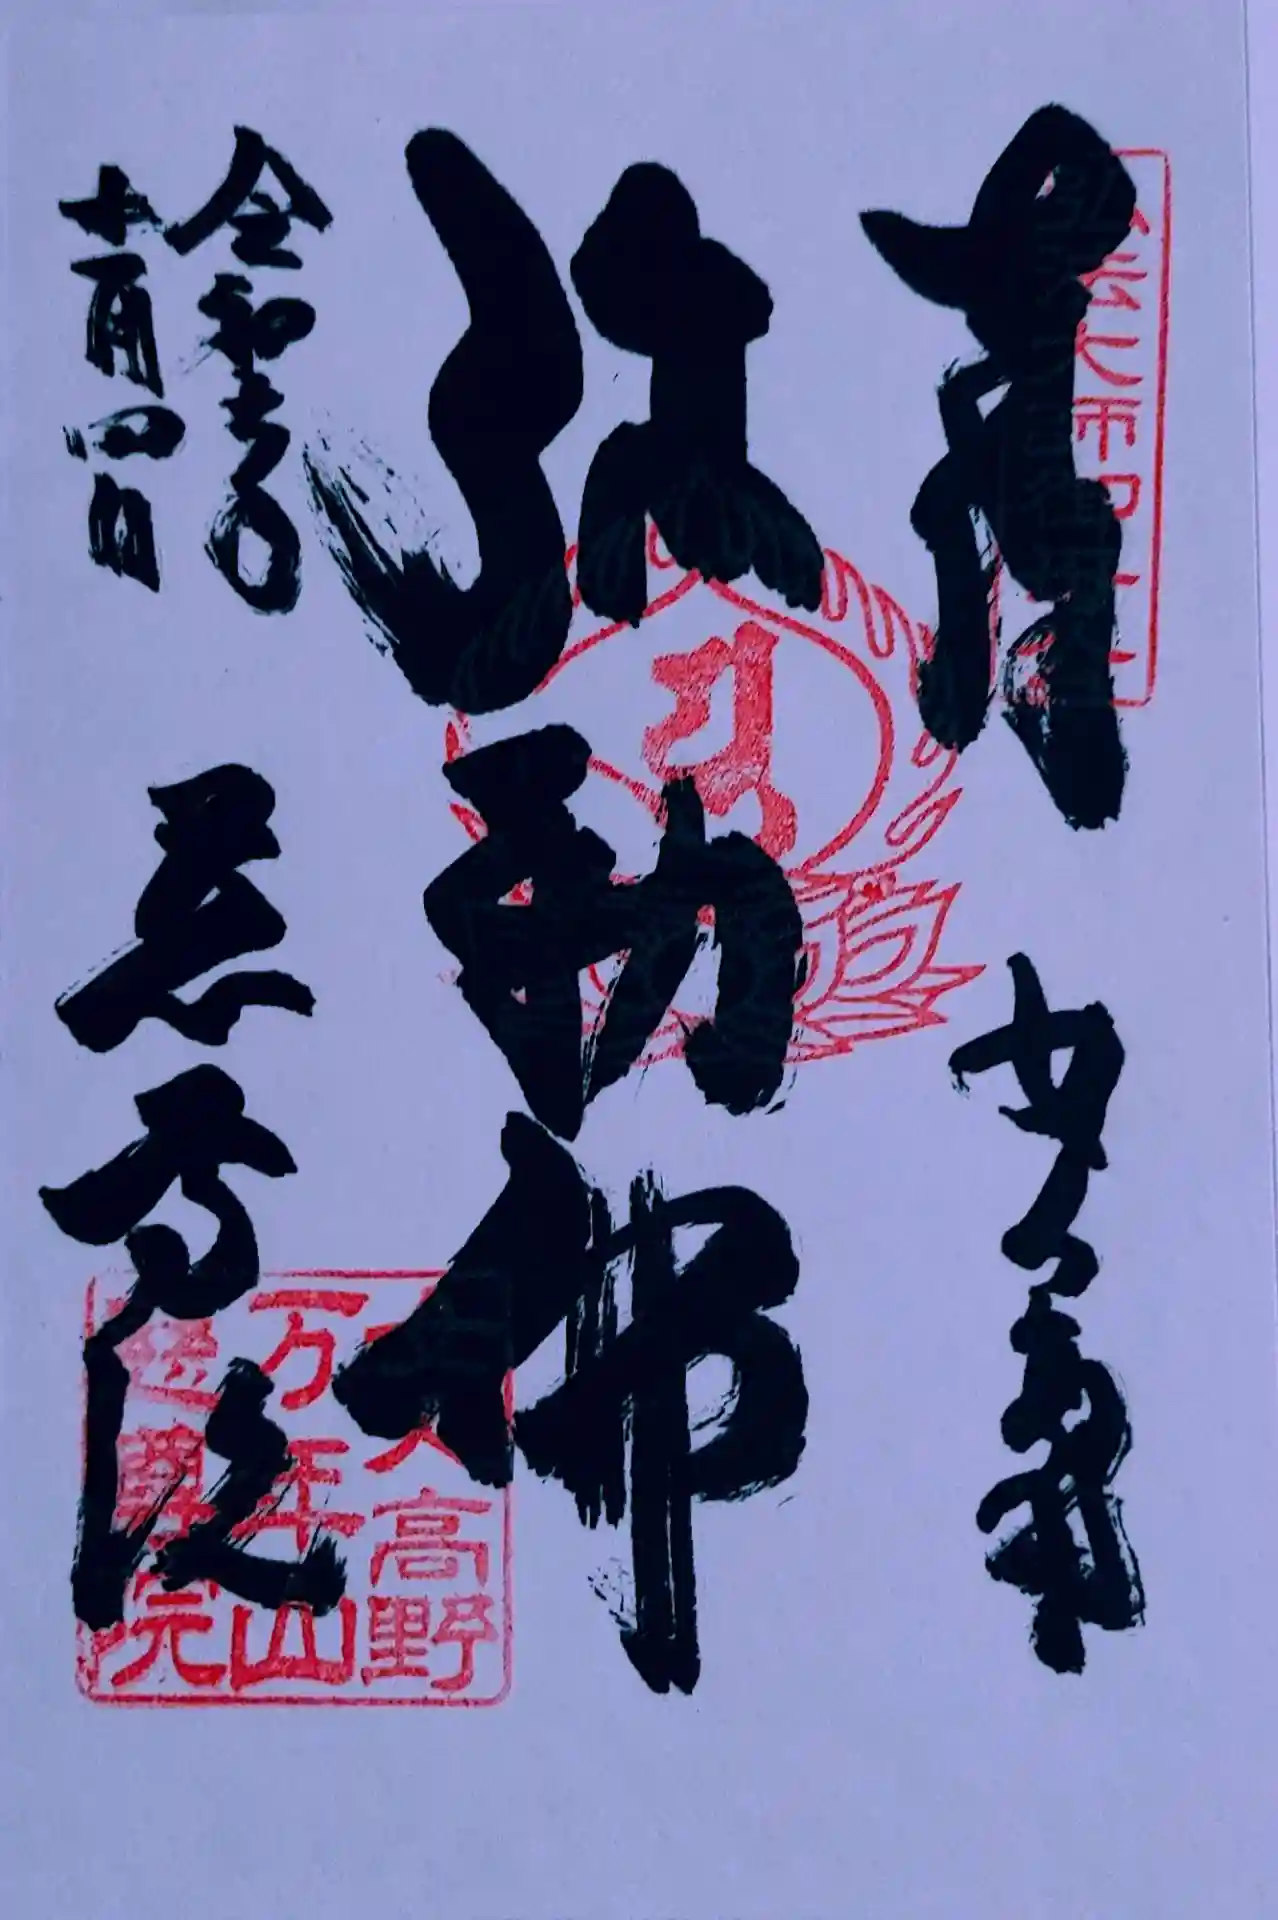 奉
女人高野
弥勒仏
令和
十一月四日
慈尊院
女人高野
万年山
慈尊院